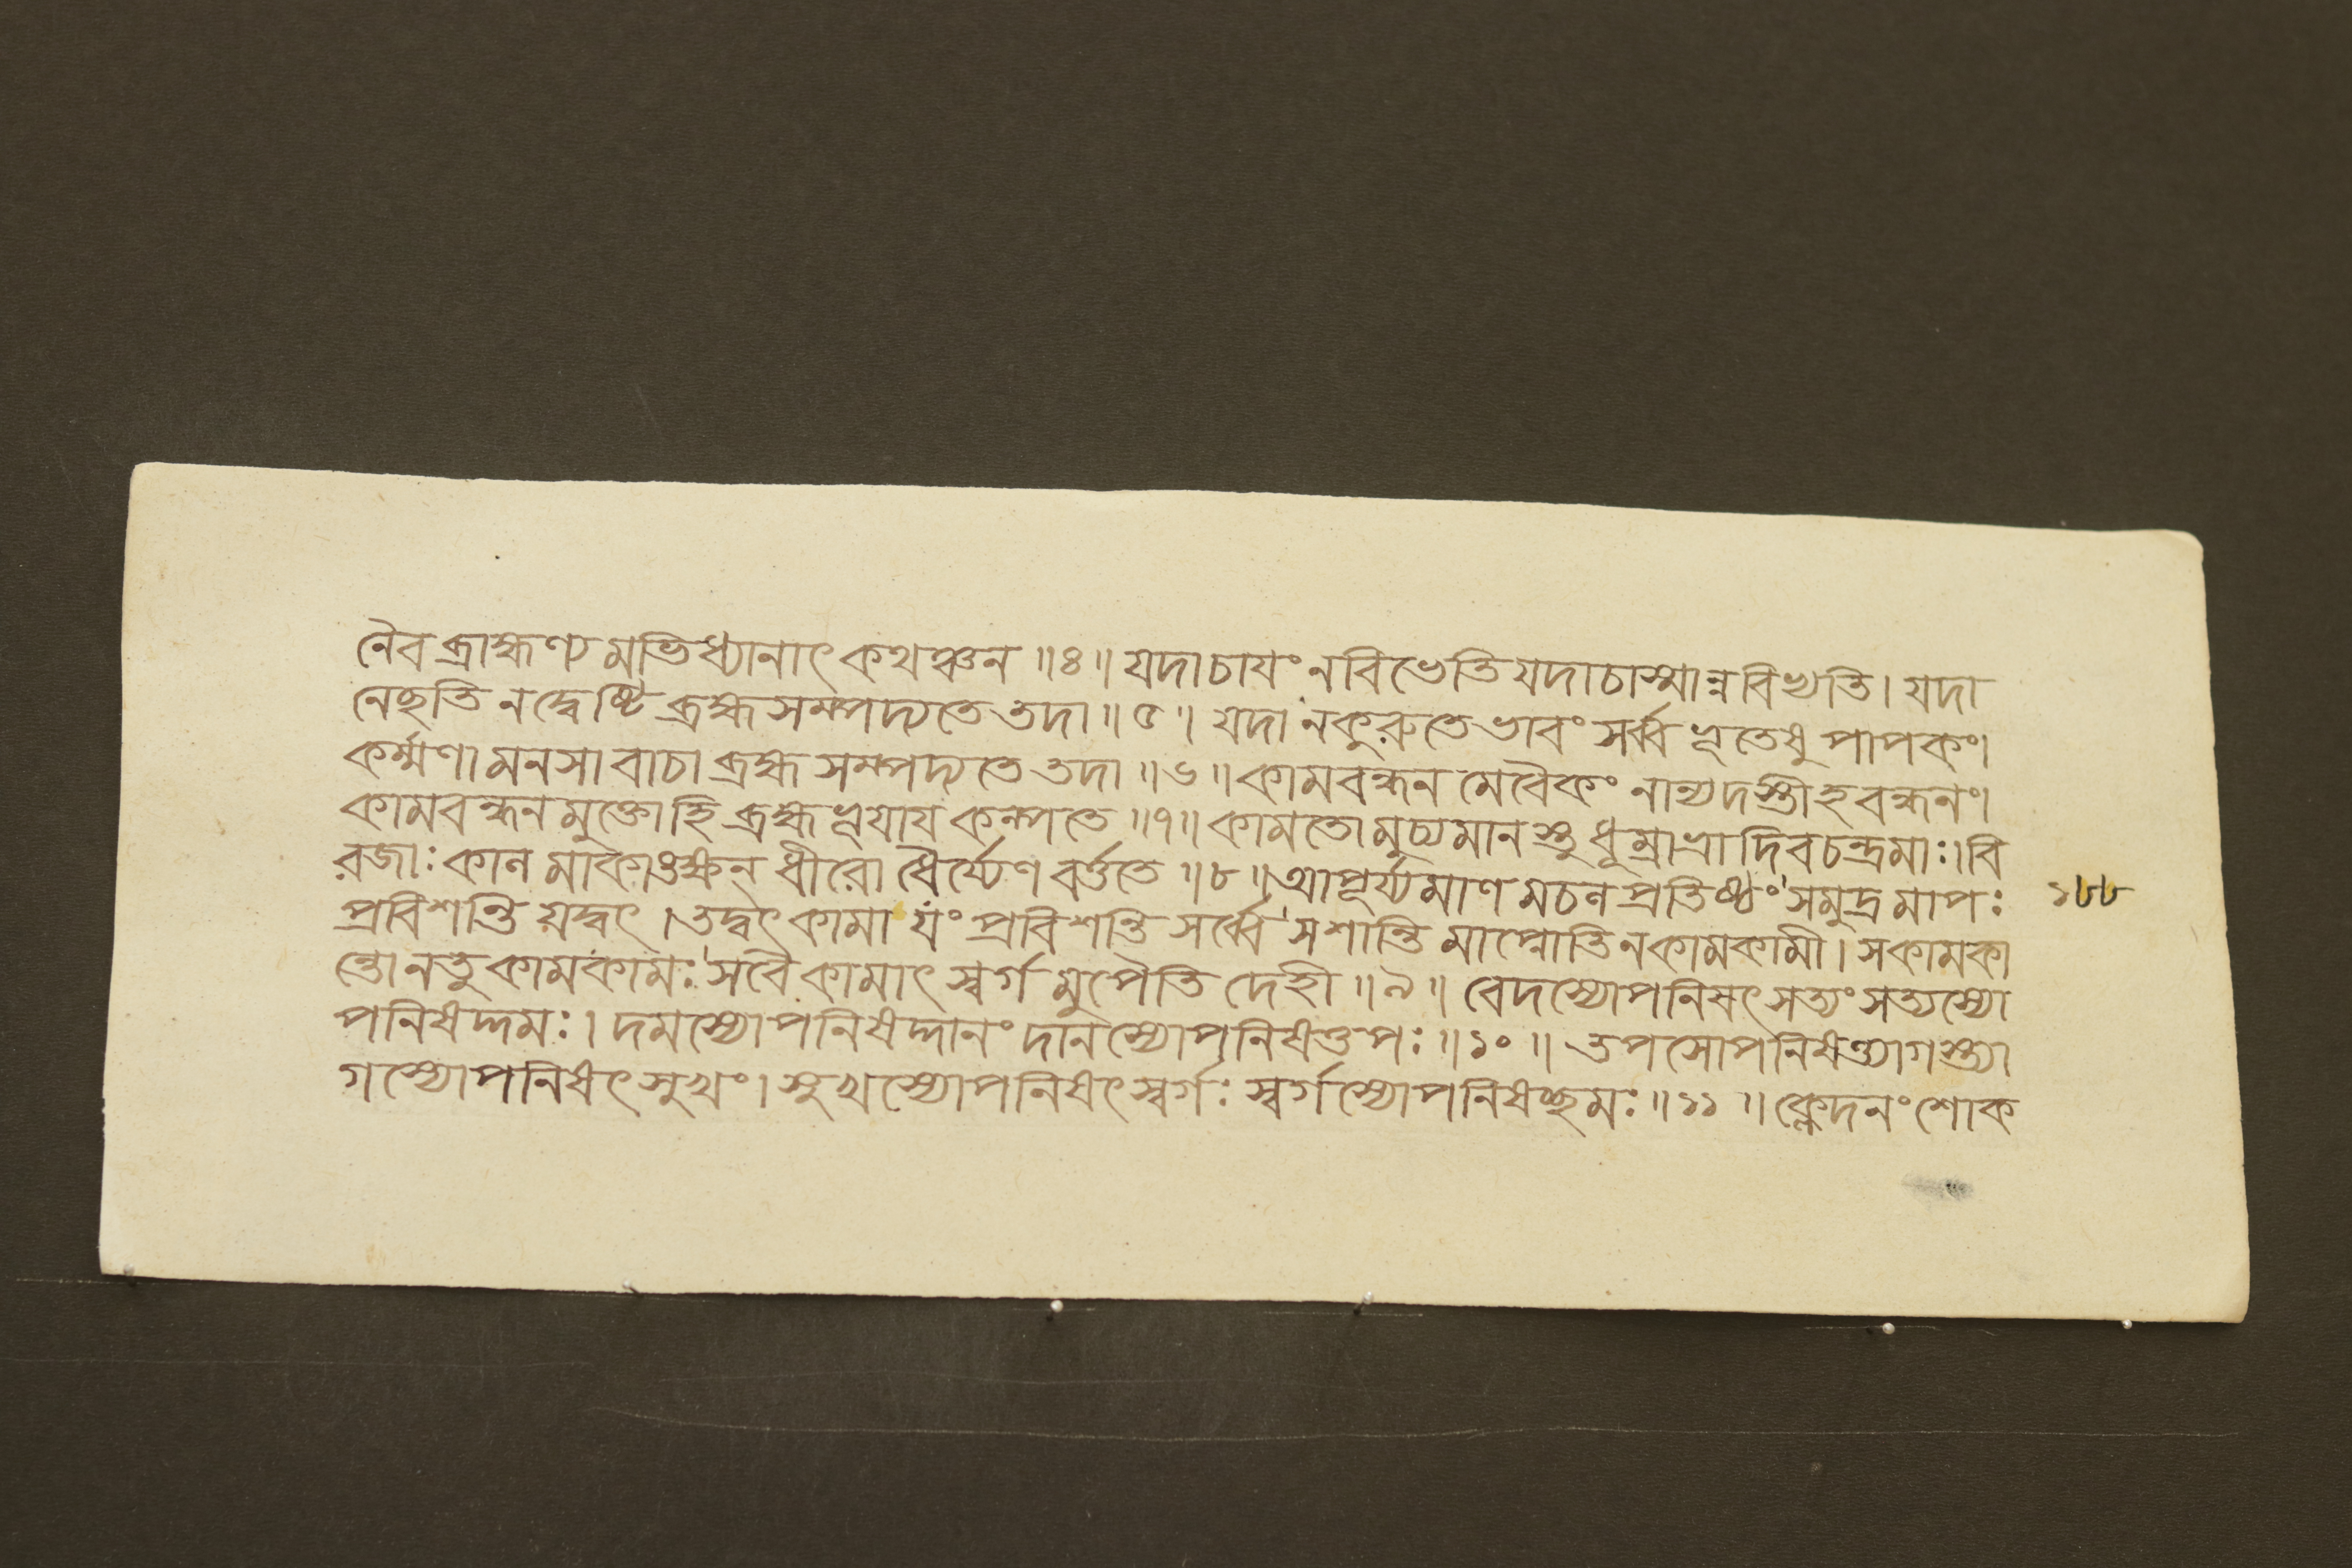 নৈব ব্রাহ্মণ্যমভিধ্যানাৎ কথঞ্চন ॥৪॥ যদাচাযং নবিভেতি যদাচাস্মান্নবিভ্যতি । যদা
নেছতি নদ্বেষ্টি ব্রহ্মসম্পদ্যতে তদা ॥৫॥ যদা নকুরুতে ভাবং সর্ব্ব ভূতেষু পাপকং।
কর্ম্মণা মনসা বাচা ব্রহ্ম সম্পদ্যতে তদা ॥৬॥ কামবন্ধন মেবৈকং নান্যদস্তীহ বন্ধনং।
কামবন্ধন মুক্তোহি ব্রহ্মভূযায কল্পতে ॥৭॥ কামতোমুচ্যমানস্তু ধূম্রাভ্রাদিব চন্দ্রমাঃ। বি
রজাঃ কাল মাকাঙক্ষন্ ধীরো ধৈর্য্যেণ বর্ত্ততে ॥৮॥ আপূর্য্যমাণ মচল প্রতিষ্ঠং সমুদ্র মাপঃ ১৮৮
প্রবিশন্তি য়দ্বৎ । তদ্বৎ কামা যং প্রবিশন্তি সর্ব্বে সশান্তি মাপ্নোতি নকামকামী । সকামকা
ন্তোনতু কামকামঃ সবৈ কামাৎ স্বর্গ মুপৈতি দেহী ॥৯॥ বেদস্যোপনিষৎ সত্যং সত্যস্যো
পনিষদ্দমঃ । দমস্যোপনিষদ্দানং দানস্যোপনিষত্তপঃ ॥১০॥ তপসোপনিষত্ত্যাগস্ত্যা
গস্যোপনিষৎ সুখং। সুখস্যোপনিষৎ স্বর্গঃ স্বর্গস্যোপনিষচ্ছমঃ ॥১১॥ ক্লেদনং শোক